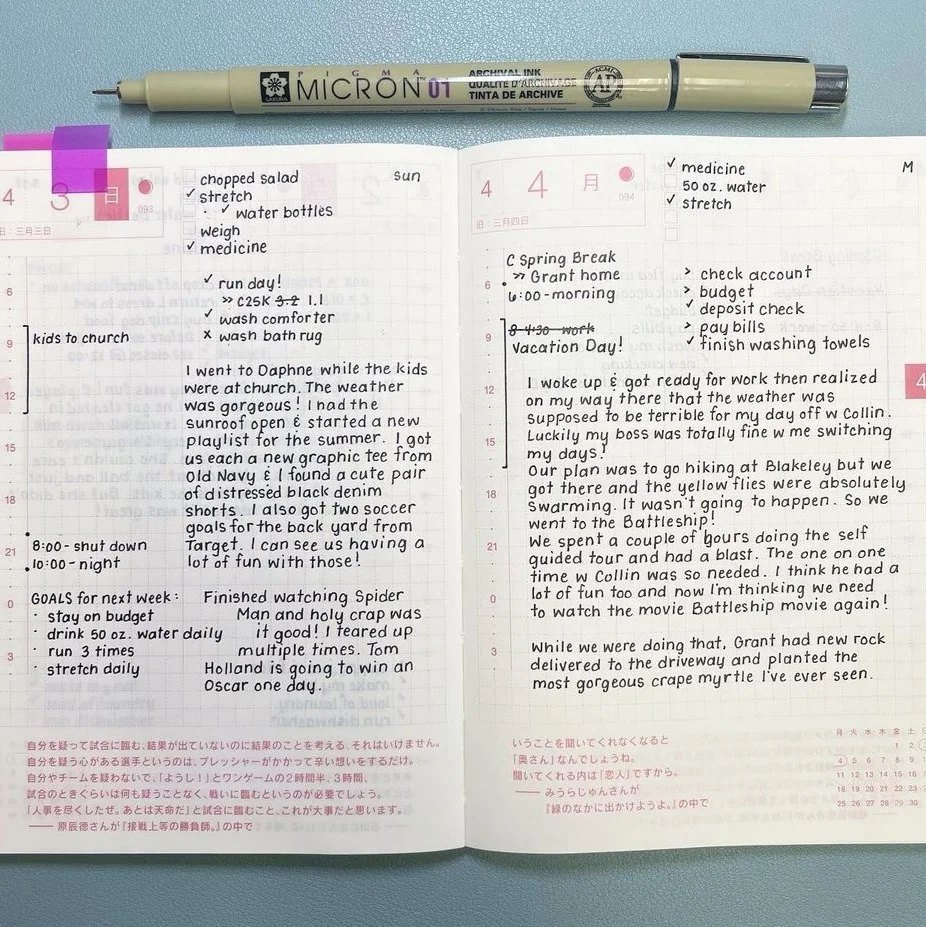 PIGMA
MICRON™ 01
SAKURA
ARCHIVAL INK
QUALITÉ D'ARCHIVAGE
TINTA DE ARCHIVE
ACMI
AP
4 3 日
093
旧: 三月三日
sun
chopped salad
✓ stretch
· · ✓ water bottles
weigh
✓ medicine
✓ run day!
» C25K 3.2 1.1
✓ wash comforter
x wash bath rug
6
9
12
15
18
21
0
3
kids to church
I went to Daphne while the kids
were at church. The weather
was gorgeous! I had the
sunroof open & started a new
playlist for the summer. I got
us each a new graphic tee from
Old Navy & I found a cute pair
of distressed black denim
shorts. I also got two soccer
goals for the back yard from
Target. I can see us having a
lot of fun with those!
8:00 - shut down
10:00 - night
GOALS for next week:
· stay on budget
· drink 50 oz. water daily
· run 3 times
· stretch daily
Finished watching Spider
Man and holy crap was
it good! I teared up
multiple times. Tom
Holland is going to win an
Oscar one day.
自分を疑って試合に臨む、結果が出ていないのに結果のことを考える、それはいけません。
自分を疑う心がある選手というのは、プレッシャーがかかって辛い想いをするだけ。
自分やチームを疑わないで、「ようし！」とワンゲームの2時間半、3時間、
試合のときぐらいは何も疑うことなく、戦いに臨むというのが必要でしょう。
「人事を尽くしたぜ。あとは天命だ」と試合に臨むこと、これが大事だと思います。
—— 原辰徳さんが『接戦上等の勝負師。』の中で
4 4 月
094
旧: 三月四日
M
✓ medicine
50 oz. water
✓ stretch
C Spring Break
» Grant home
6:00 - morning
8-4:30 - work
Vacation Day!
> check account
> budget
✓ deposit check
> pay bills
✓ finish washing towels
6
9
12
15
18
21
0
3
4
I woke up & got ready for work then realized
on my way there that the weather was
supposed to be terrible for my day off w Collin.
Luckily my boss was totally fine w me switching
my days!
Our plan was to go hiking at Blakeley but we
got there and the yellow flies were absolutely
swarming. It wasn't going to happen. So we
went to the Battleship!
We spent a couple of hours doing the self
guided tour and had a blast. The one on one
time w Collin was so needed. I think he had a
lot of fun too and now I'm thinking we need
to watch the movie Battleship movie again!
While we were doing that, Grant had new rock
delivered to the driveway and planted the
most gorgeous crape myrtle I've ever seen.
いうことを聞いてくれなくなると
「奥さん」なんでしょうね。
聞いてくれる内は「恋人」ですから。
—— みうらじゅんさんが
『緑のなかに出かけようよ。』の中で
月 火 水 木 金 土
1 2
4 5 6 7 8 9
11 12 13 14 15 16
18 19 20 21 22 23
25 26 27 28 29 30